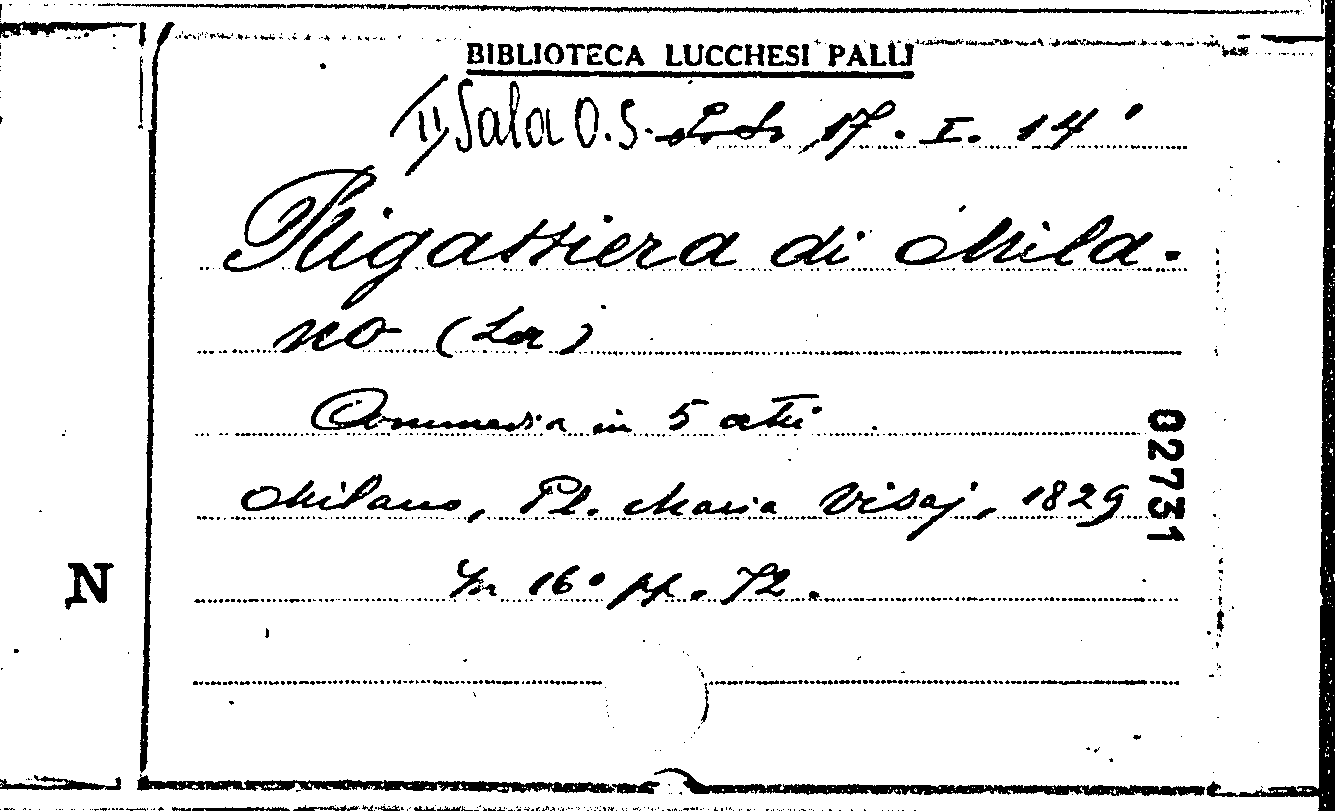 BIBLIOTECA LUCCHESI PALLI
II) Sala O.S. 17. I. 14'
Rigattiera di Mila.
no (La)
Commedia in 5 atti.
Milano, Pl. Maria Visaj, 1829
In 16º pp. 72.
02731
N